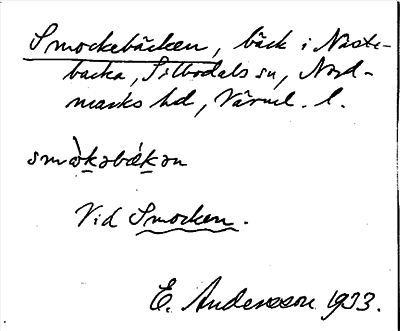 Smockebäcken, bäck i Näste-
backa, Silbodals sn, Nord-
marks hd, Värml. l.
smòkəbǽkən
Vid Smocken.
E. Andersson 1933.